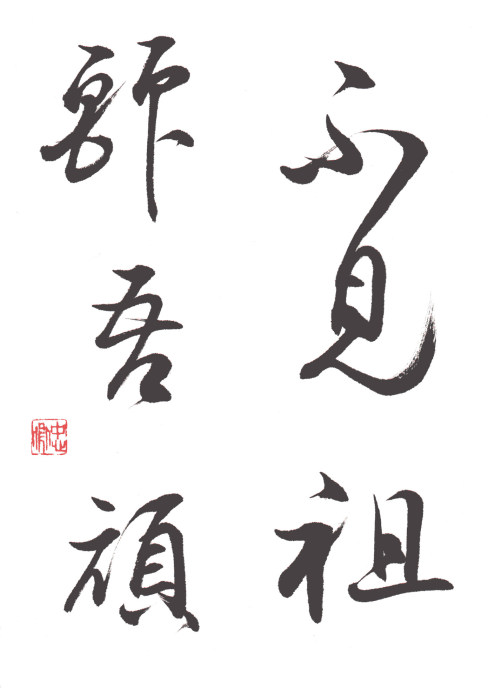 不見祖
師吾頑